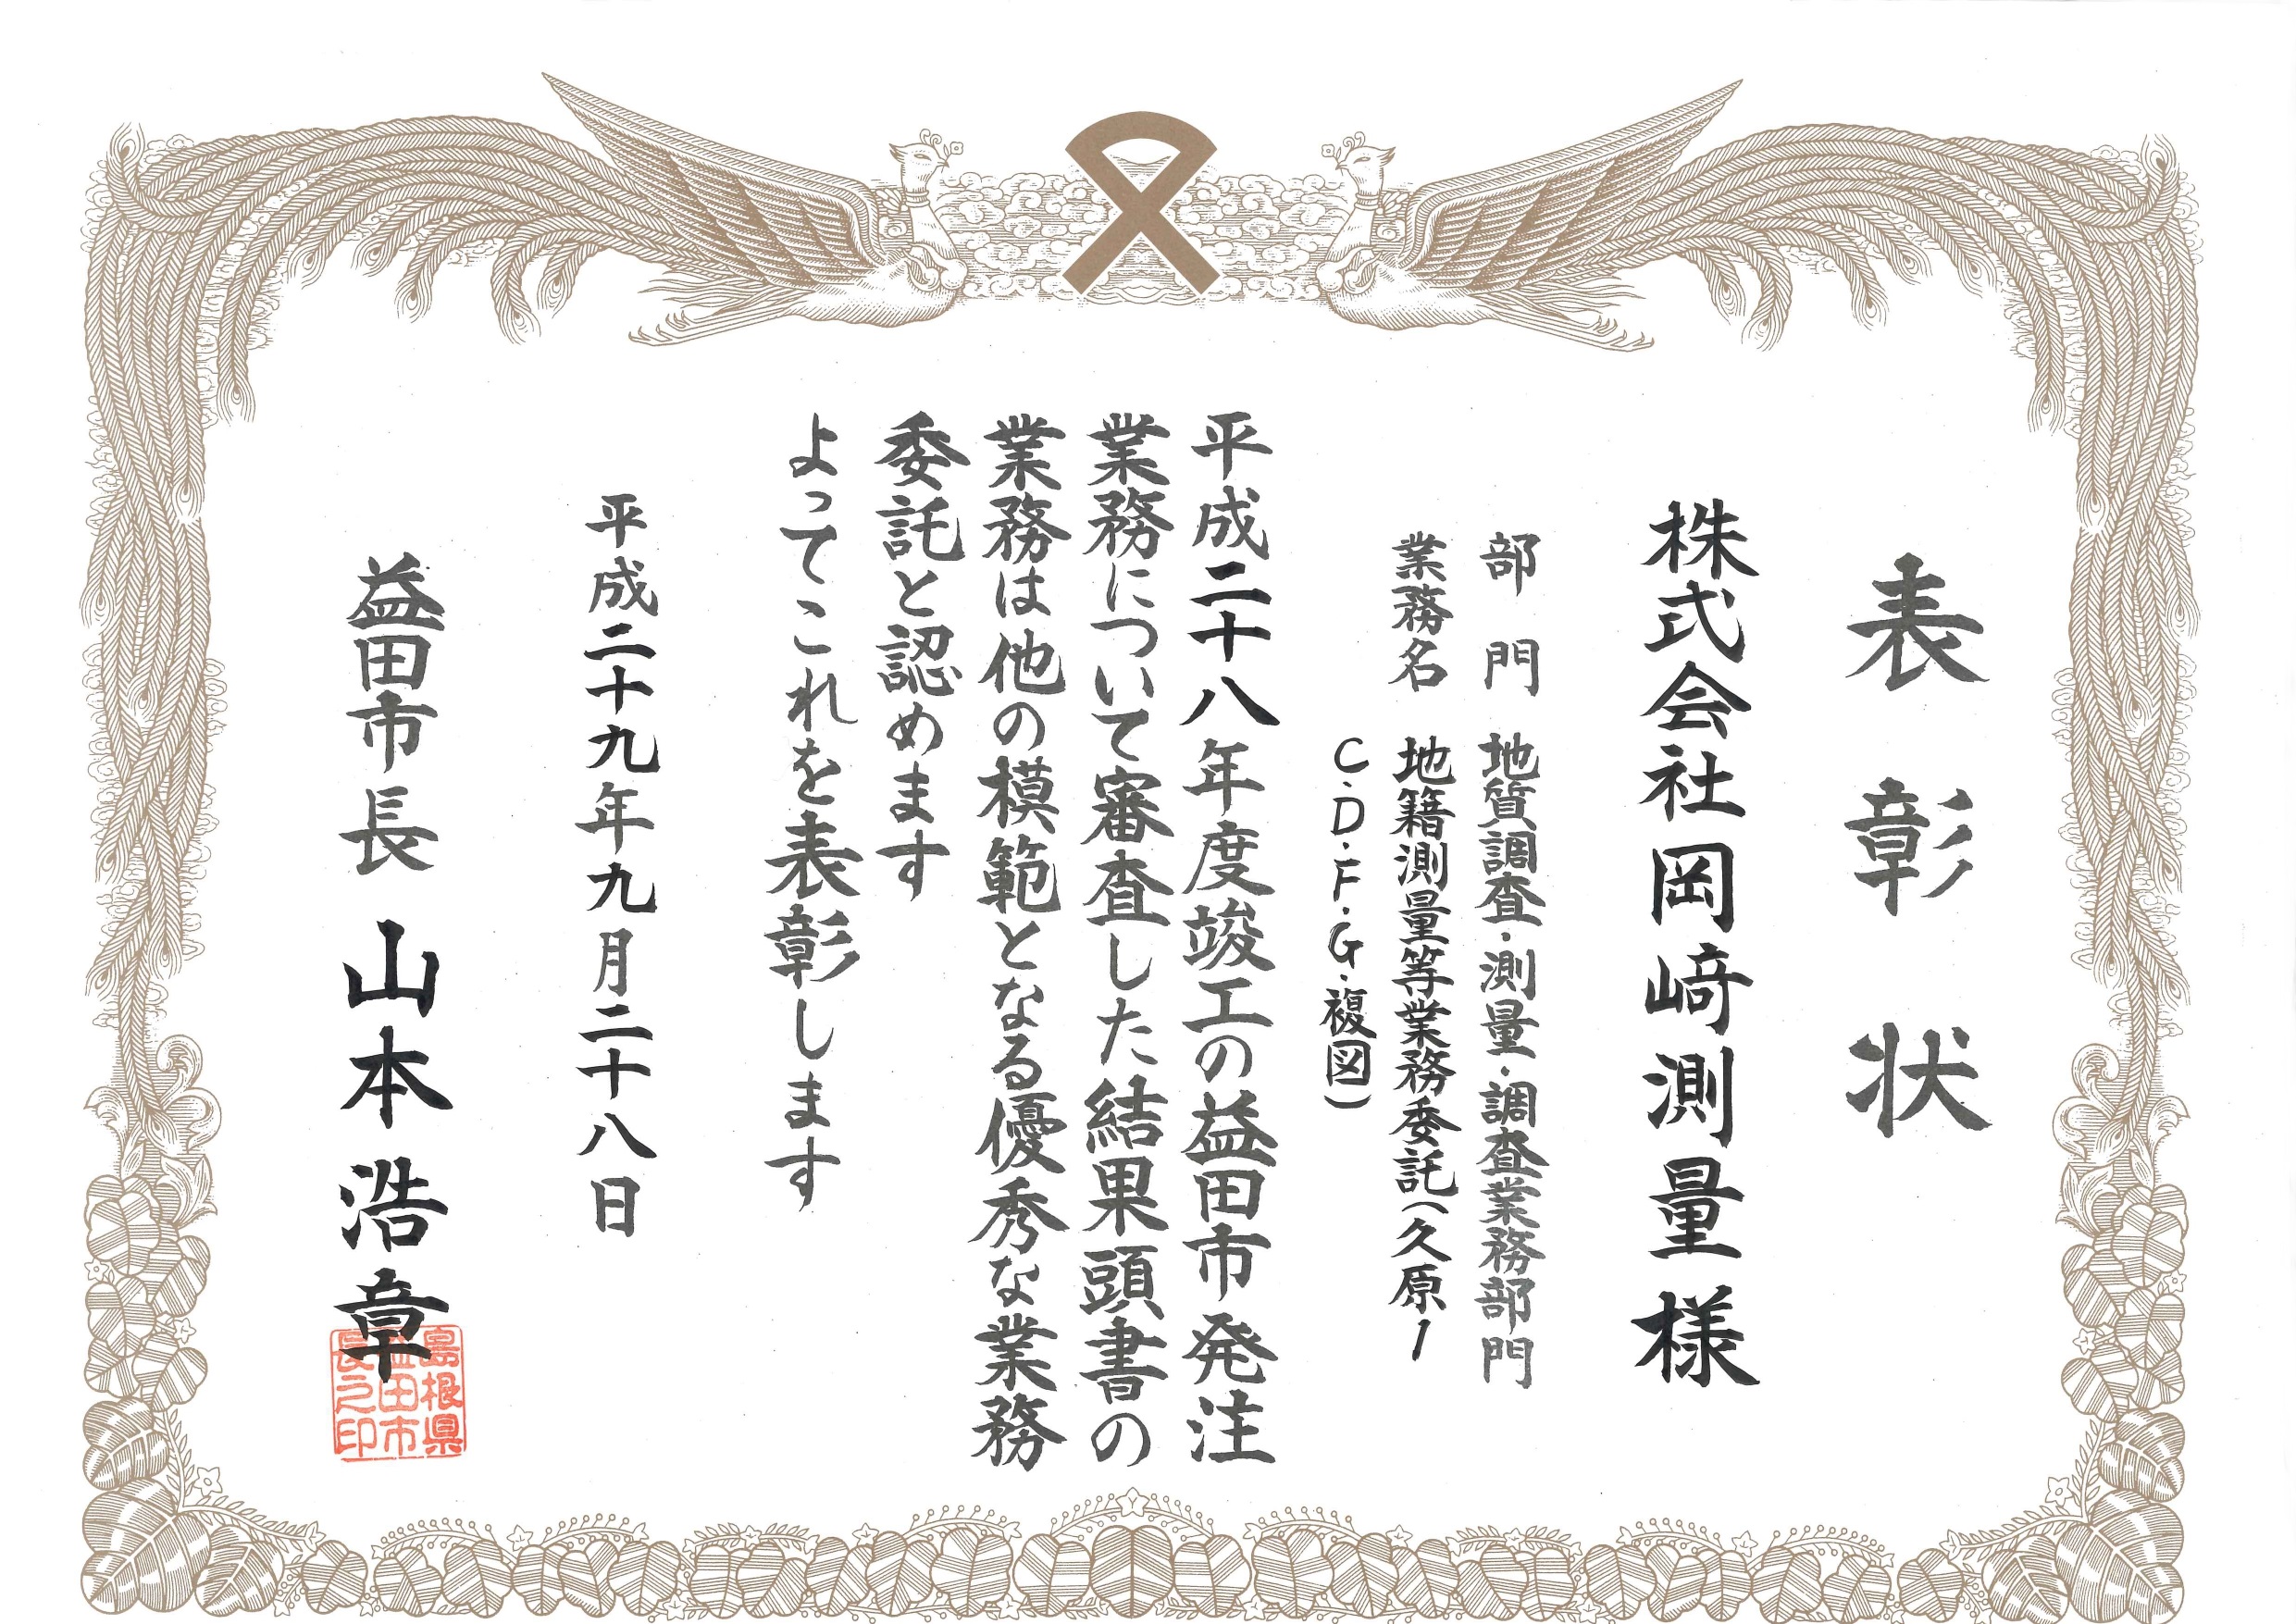 表彰状
株式会社岡﨑測量様
部門 地質調査・測量・調査業務部門
業務名 地籍測量等業務委託(久原1
C・D・F・G・複図)
平成二十八年度竣工の益田市発注
業務について審査した結果頭書の
業務は他の模範となる優秀な業務
委託と認めます
よってこれを表彰します
平成二十九年九月二十八日
益田市長 山本浩章
島根県
益田市
長之印